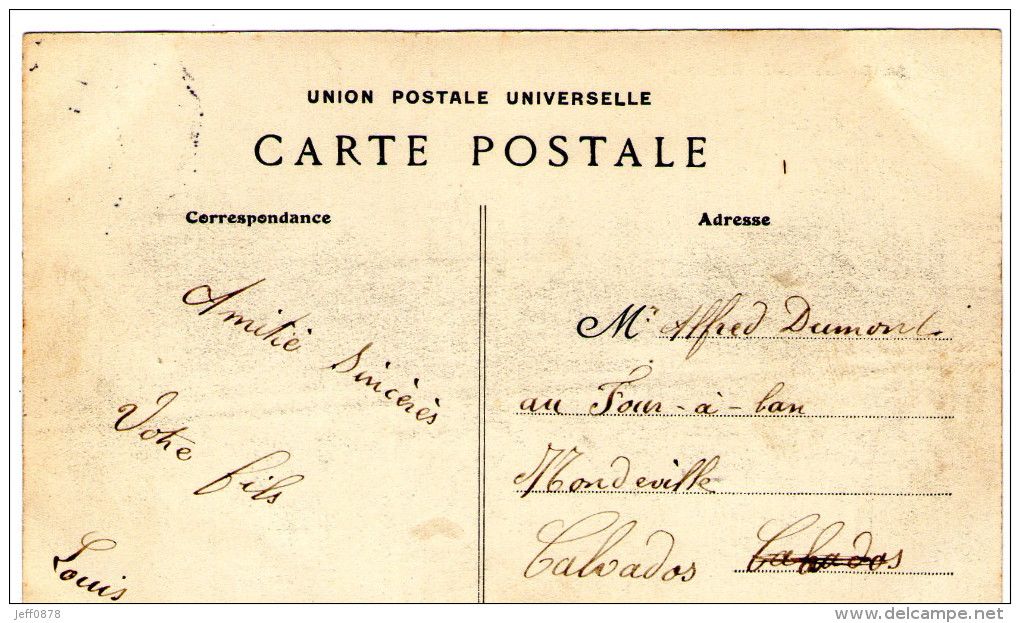 UNION POSTALE UNIVERSELLE
CARTE POSTALE
Correspondance
Amitié Sincères
Votre fils
Louis
Adresse
Mr Alfred Dumont
au Four-à-ban
Mondeville
Calvados Calvados
jeff0878
delcampe.net